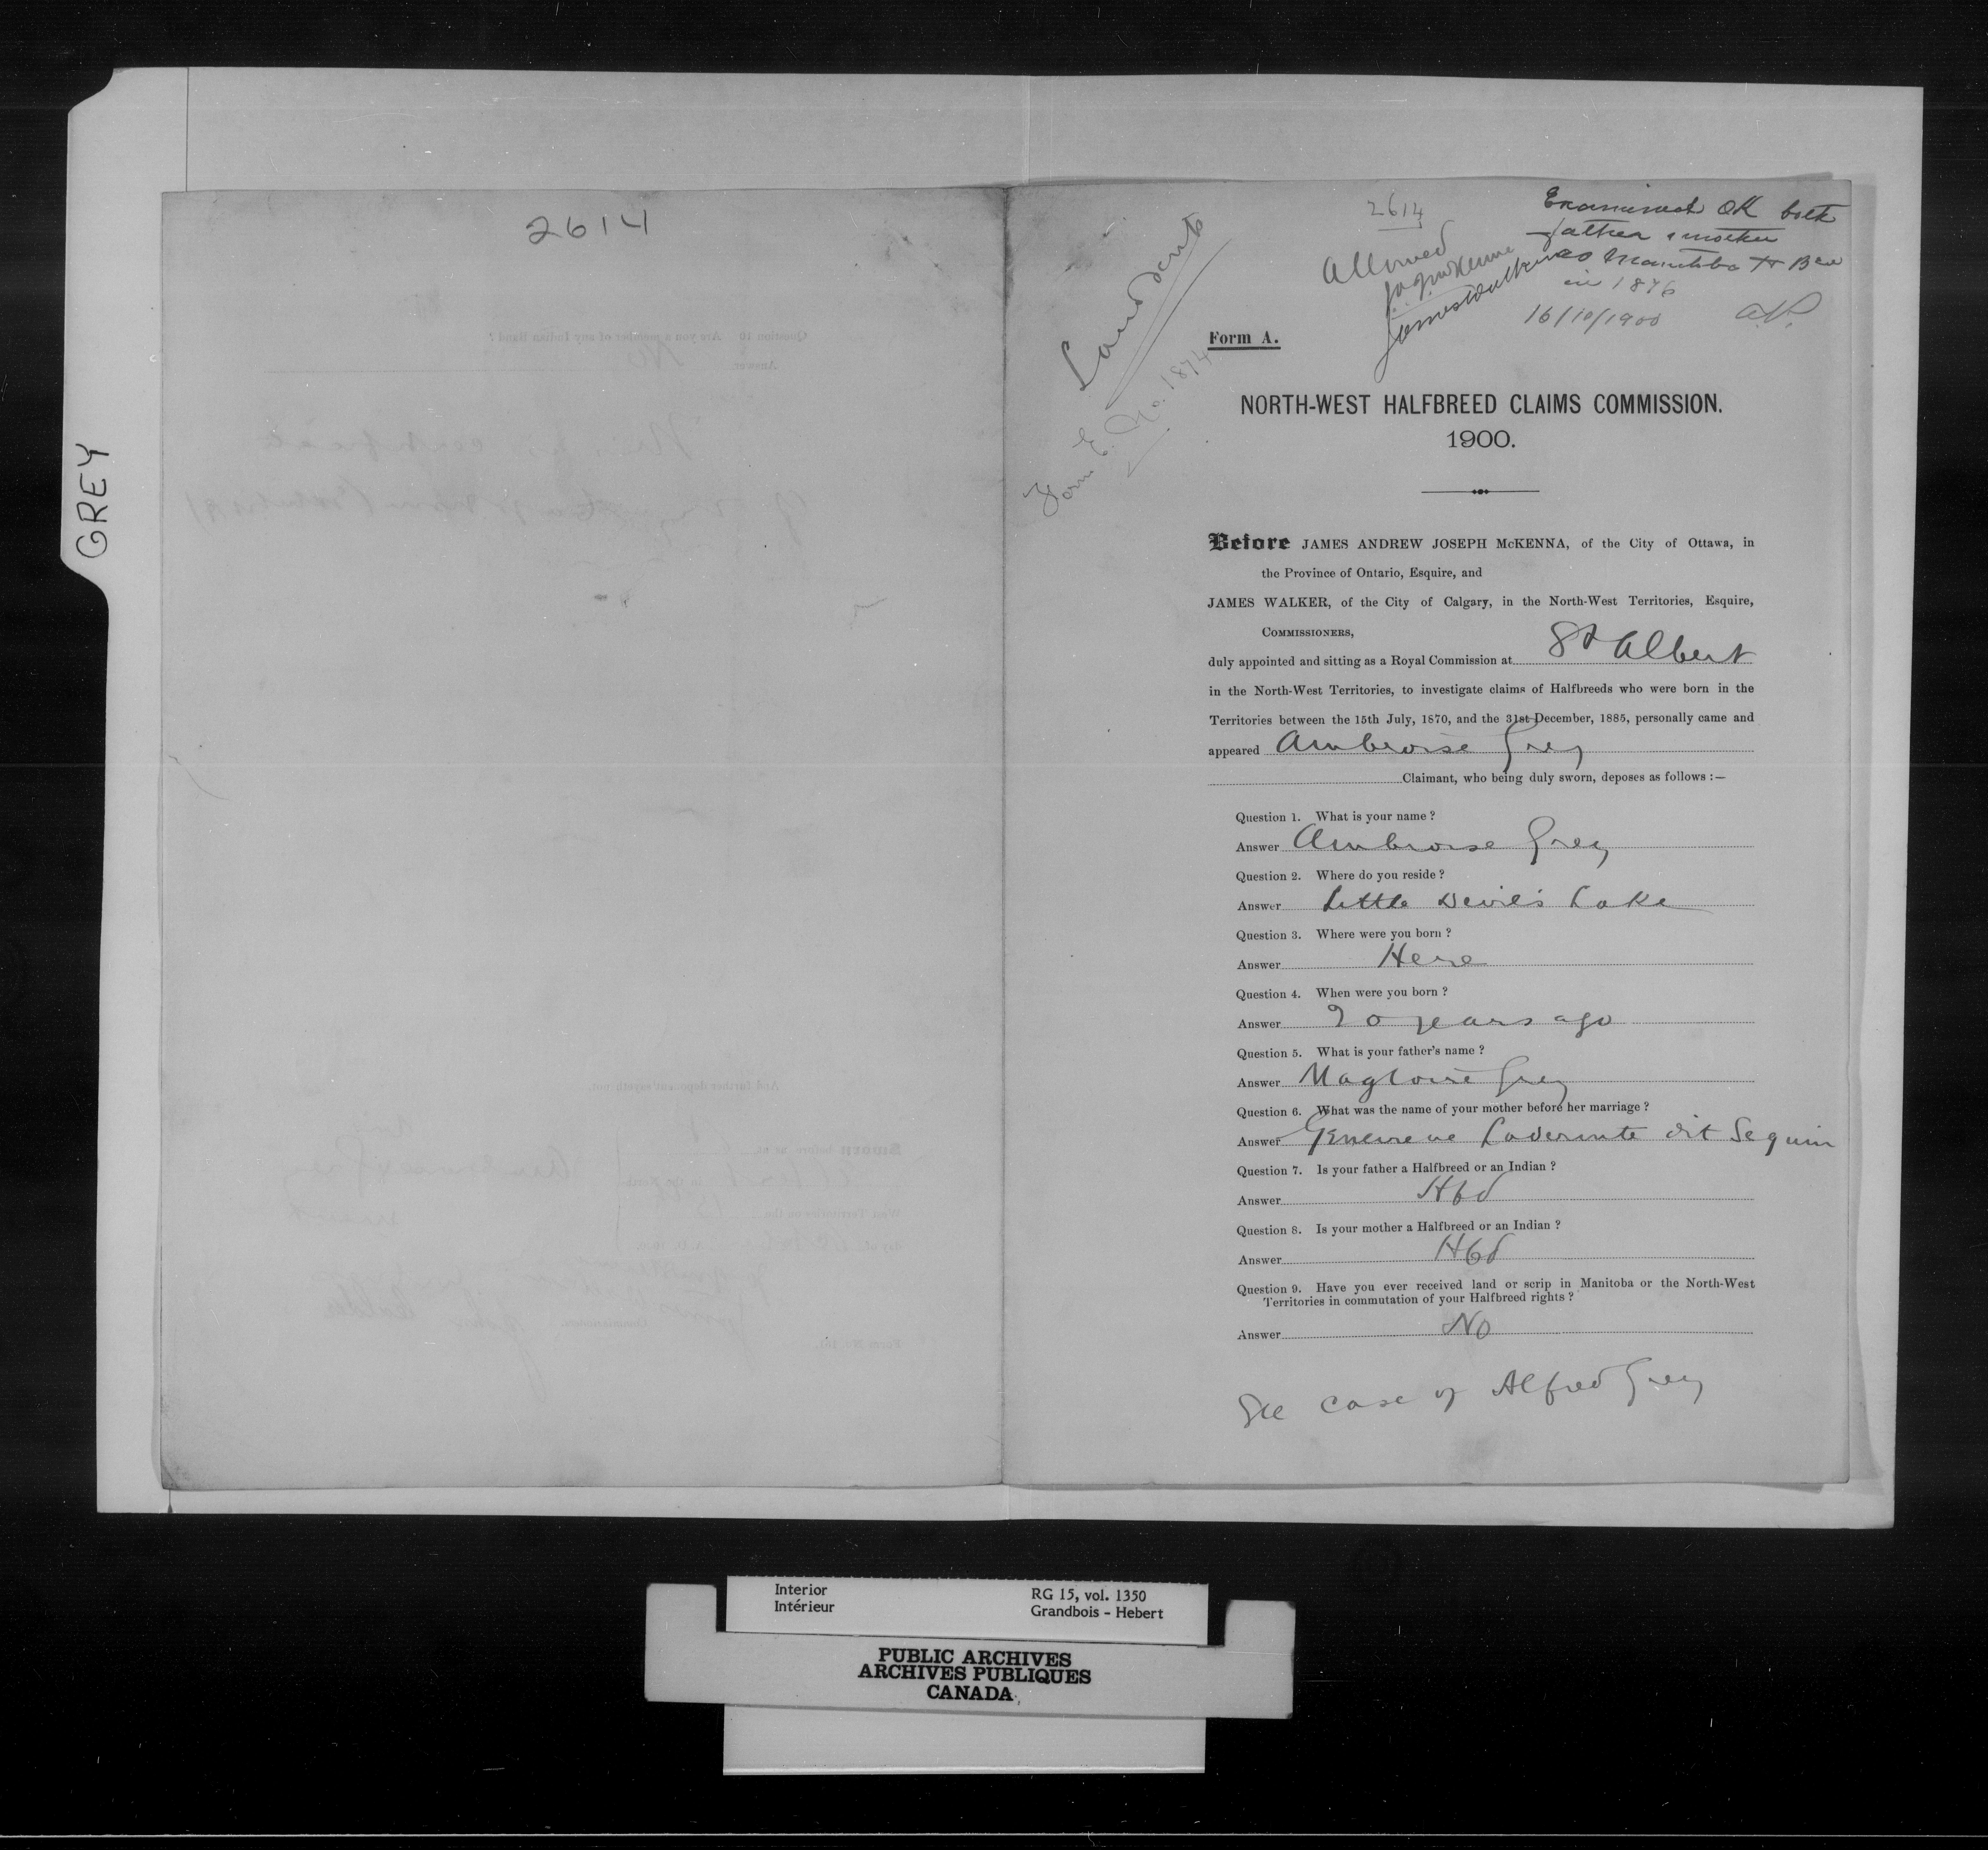 GREY
2614
2614
Examined OK both
father & mother
as Manitoba H Bds
in 1876
16/10/1900
Allowed
J.A.J. McKenna
James Walker
Land Scrip
Form E. No. 1874
Form A.
NORTH-WEST HALFBREED CLAIMS COMMISSION.
1900.
Before JAMES ANDREW JOSEPH McKENNA, of the City of Ottawa, in
the Province of Ontario, Esquire, and
JAMES WALKER, of the City of Calgary, in the North-West Territories, Esquire,
COMMISSIONERS,
duly appointed and sitting as a Royal Commission at St Albert
in the North-West Territories, to investigate claims of Halfbreeds who were born in the
Territories between the 15th July, 1870, and the 31st December, 1885, personally came and
appeared Ambroise Grey
Claimant, who being duly sworn, deposes as follows :—
Question 1. What is your name ?
Answer Ambroise Grey
Question 2. Where do you reside ?
Answer Little Devil's Lake
Question 3. Where were you born ?
Answer Here
Question 4. When were you born ?
Answer 20 years ago
Question 5. What is your father's name ?
Answer Magloire Grey
Question 6. What was the name of your mother before her marriage ?
Answer Genevieve Laderoute dit Seguin
Question 7. Is your father a Halfbreed or an Indian ?
Answer Hbd
Question 8. Is your mother a Halfbreed or an Indian ?
Answer Hbd
Question 9. Have you ever received land or scrip in Manitoba or the North-West
Territories in commutation of your Halfbreed rights ?
Answer No
See case of Alfred Grey
Interior
Intérieur
RG 15, vol. 1350
Grandbois - Hebert
PUBLIC ARCHIVES
ARCHIVES PUBLIQUES
CANADA